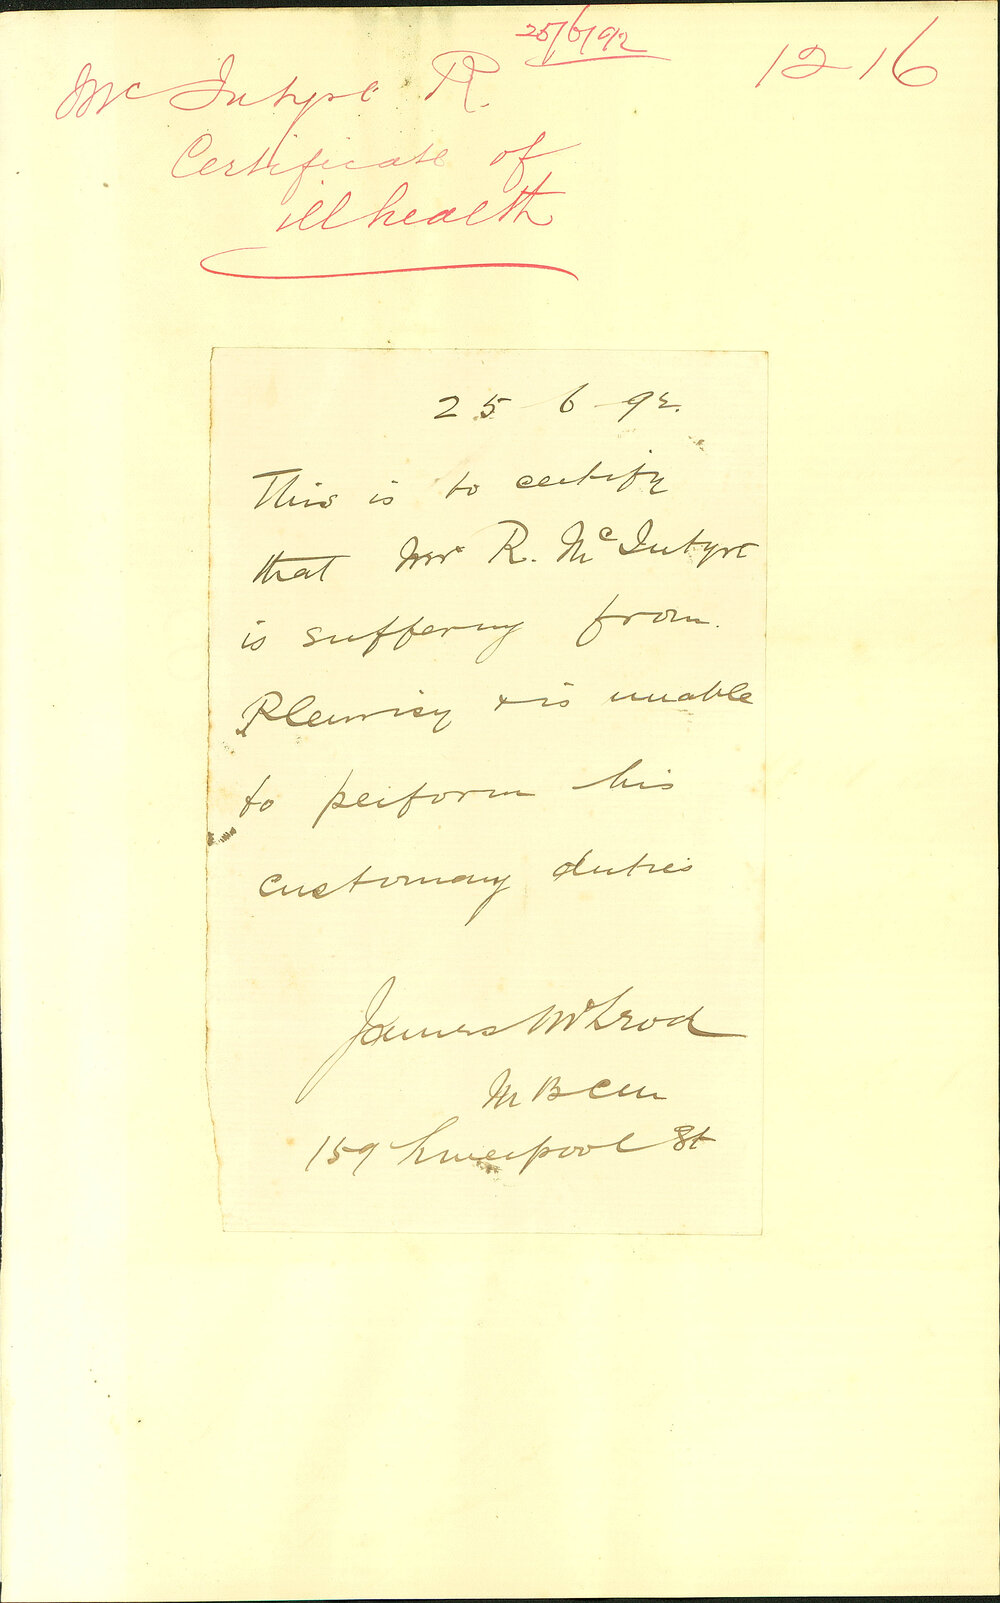 25/6/92
McIntyre R.
1216
Certificate of
ill health
25 6 92.
This is to certify
that Mr R. McIntyre
is suffering from.
Pleurisy & is unable
to perform his
customary duties
James McLeod
M B CM
159 Liverpool St